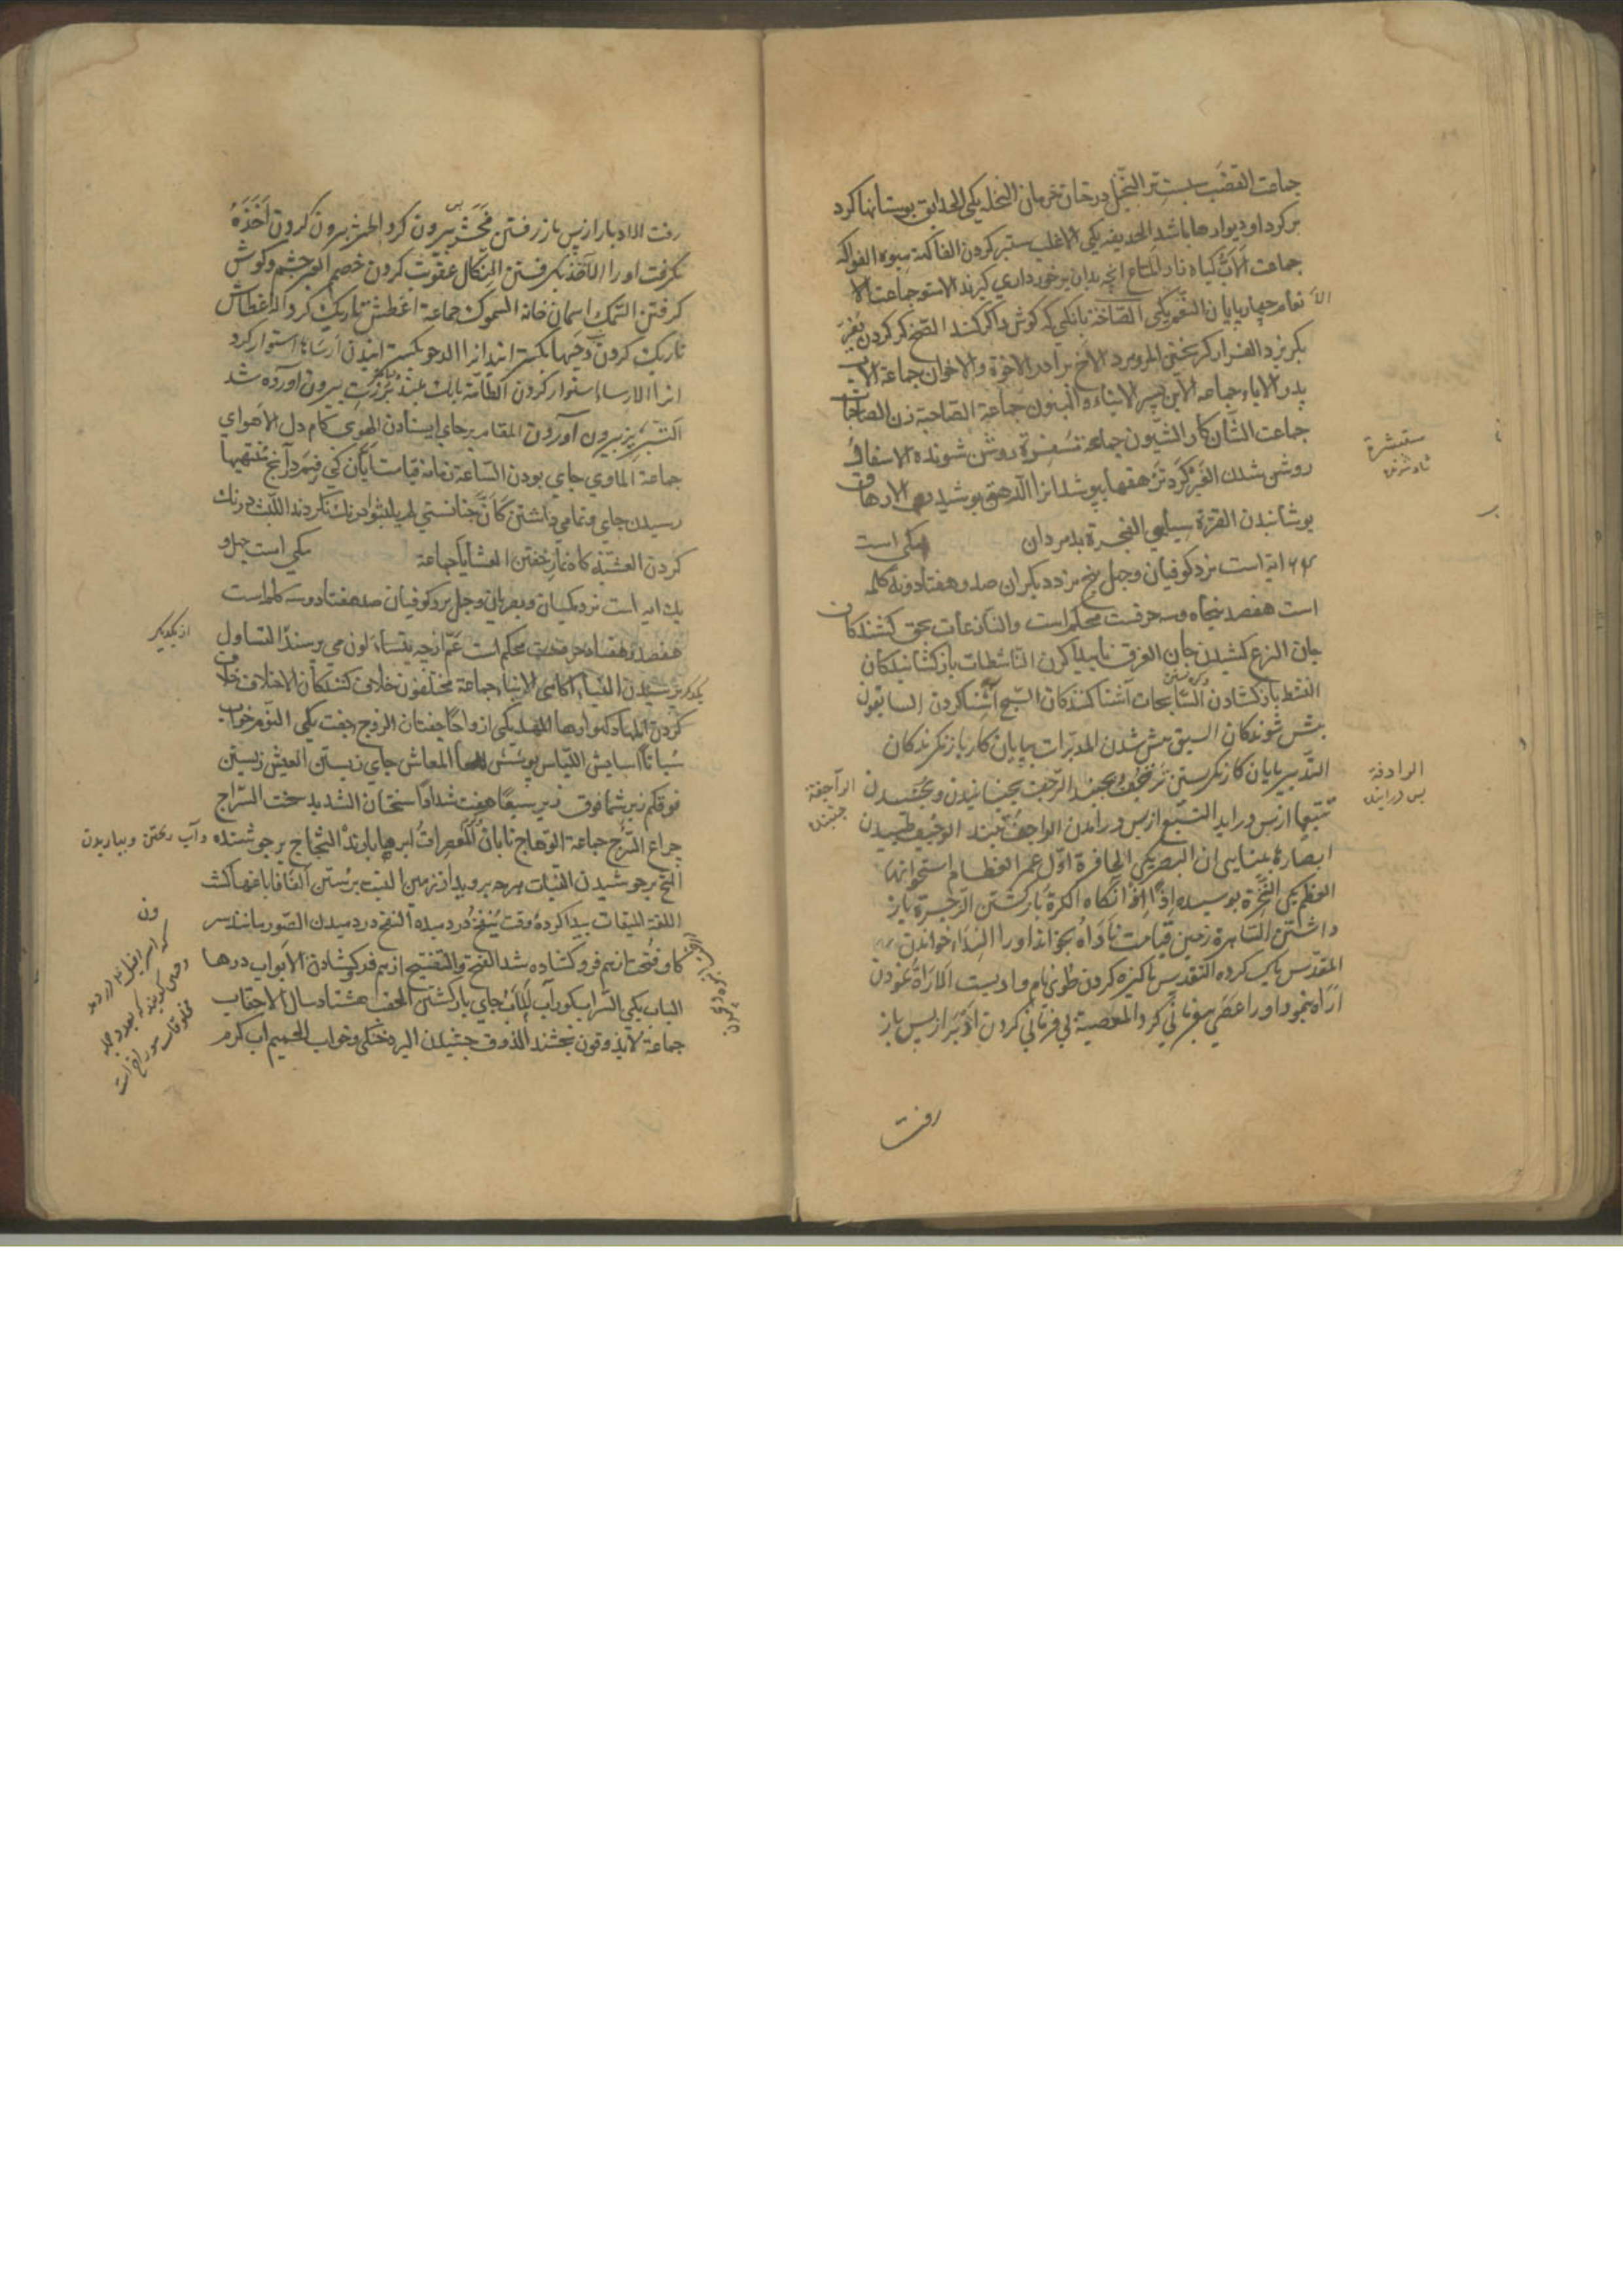 جماعت القضب سپست تر النخل درختان خرمان النخله یکی الحدایق بوستانها کرد
بر کرد او دیوارها باشد الحدیقه یکی الاغلب ستبر کردن الفاکهة میوه الفواکه
جماعت الاَبّ کیاه ناد المتاع انچه بدان برخورداری کیرند الاستو جماعت الا
نعام چهارپایان النعم یکی الصّاخة بانکی که کوش را کر کند الصّخ کر کردن یَفِرّ
بکریزد الفرار کریختن المرو مرد الاخ برادر الاخوة والاخوان جماعة الاب
پدر الاباء جماعه الابن پسر الابناء والبنون جماعة الصّاحبة زن الصّاحبات
جماعت الشّان کار الشّیون جماعة مُسْفِرَة روشن شونده الاسفار
روشن شدن الغَبَر کرد ترهقها بپوشد انرا الرهق پوشیدن الارهاق
پوشانیدن القترة سیاهی الفجرة بدمردان مکی است
ایه است نزد کوفیان و چهل پنج نزد دیکران صد و هفتاد و نه کلمه
است هفصد پنجاه و سه حرفست محکم است والنّازعات بحق کشندکان
جان النزع کشیدن جان الغرق ناپیدا کردن النّاشطات بازکشانیدکان
النشط بازکشادن السّابحات آشنا کنندکان السّبح آشنا کردن السابقون
پیش شوندکان السبق پیش شدن المدبّرات بپایان کار بازنکرندکان
التّدبیر بپایان کار نکرستن تَرْجُفُ بجنبد الرّجف بجنبانیدن و بجنبیدن الرّاجفة
جنبنده
تتبعها از پس در اید التتبّع از پس در رامدن الواجفة تپنده الوجیف طپیدن
ابصارها بینایی ان البصر یکی الحافرة اوّل عمر العظام استخوانها
العظم یکی النّخرة پوسیده اِذًا انکاه الکرّة بازکشتن الزّجرة باز
داشتن السّاهرة زمین قیامت نَادَاهُ بخواند او را النِدَا خواندن
المقدّس پاک کرده التقدیس پاکیزه کردن طوی نام وادیست الاراة نمودن
اَرَاهُ بنمود او را عَصَی بیفرمانی کرد المعصیة بی فرمانی کردن اَدْبَرَ از پس باز
رفت
مستبشرة
شادشونده
الرادفة
پس درآینده
رفت الادبار از پس باز رفتن فَحَشَرَ پس بیرون کرد الحشر بیرون کردن اَخَذَهُ
بکرفت او را الاَخذ بکرفتن النکال عقوبت کردن خصم
کرفتن السّمک اسمان خانه السموک جماعة اغطش تاریک کرد الاغطاش
تاریک کردن دَحَیها بکسترانید انرا الدحو بکسترانیدن اَرْسَاهَا استوار کرد
انرا الارساء استوار کردن الطّامّة بانک بلند بُرِّزَتِ بیرون آورده شد
التّبریز بیرون آوردن المقام برجای ایستادن الهوی کام دل الاهوای
جماعة الماوی جای بودن السّاعة زمانه قیامت اَیَّانَ کی فیم در آنچ مُنْتَهَیها
رسیدن جای و تمامی داشتن کَاَنَّ چنانستی لم یلبثوا درنک نکردند اللّبث درنک
کردن العشیّة کاه نماز خفتن العشایا جماعة مکی است چهل و
یک ایه است نزد مکیان و بصریان و چهل نزد کوفیان صد هفتاد و سه کلمه است
هفصد و هفتاد حرفست محکم است عَمَّ ازچه یتساءلون می پرسند التساول
یکدیکر پرسیدن النباء اکاهی الانباء جماعة مختلفون خلاف کنندکان الاختلاف خلاف
کردن المهاد کهوارها المهد یکی ازواجًا جفتان الزوج جفت یکی النّوم خواب
سُبَاتًا اسایش اللباس پوشش المعاش جای زیستن العیش زیستن
فوقکم زبر شما فوق زبر سبعًا هفت شدادًا سختان الشدید سخت السّراج
چراغ السُّرج جماعة الوهّاج تابان المعصرات ابرها باونده الثجّاج برجوشنده و آب ریختن و بباریدن
الثج برجوشیدن النبات هرچه بروید از زمین النبت برستن الفافا باغها کشن
اللّفة المیقات پیدا کرده وقت یُنْفَخُ دردمیده النفخ دردمیدن الصّور مانند سر
کاو فُتحت ازهم فرو کشاده شد الفتح والتفتیح ازهم فرو کشادن الابواب درها
الباب یکی السّراب کوراب لَبِثَ جای بازکشتن الحقب هشتاد سال الاحقاب
جماعة لایذوقون نچشند الذوق چشیدن البرد خنکی و خواب الحمیم آب کرم
از یکدیکر